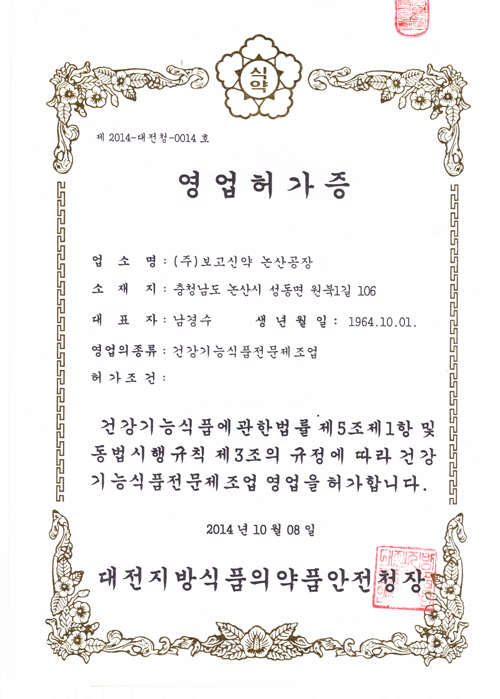 식약
제 2014-대전청-0014 호
영업허가증
업 소 명 : (주)보고신약 논산공장
소 재 지 : 충청남도 논산시 성동면 원북1길 106
대 표 자 : 남경수 생 년 월 일 : 1964.10.01.
영업의종류 : 건강기능식품전문제조업
허가조건 :
건강기능식품에관한법률 제5조제1항 및
동법시행규칙 제3조의 규정에 따라 건강
기능식품전문제조업 영업을 허가합니다.
2014 년 10 월 08 일
대전지방식품의약품안전청장